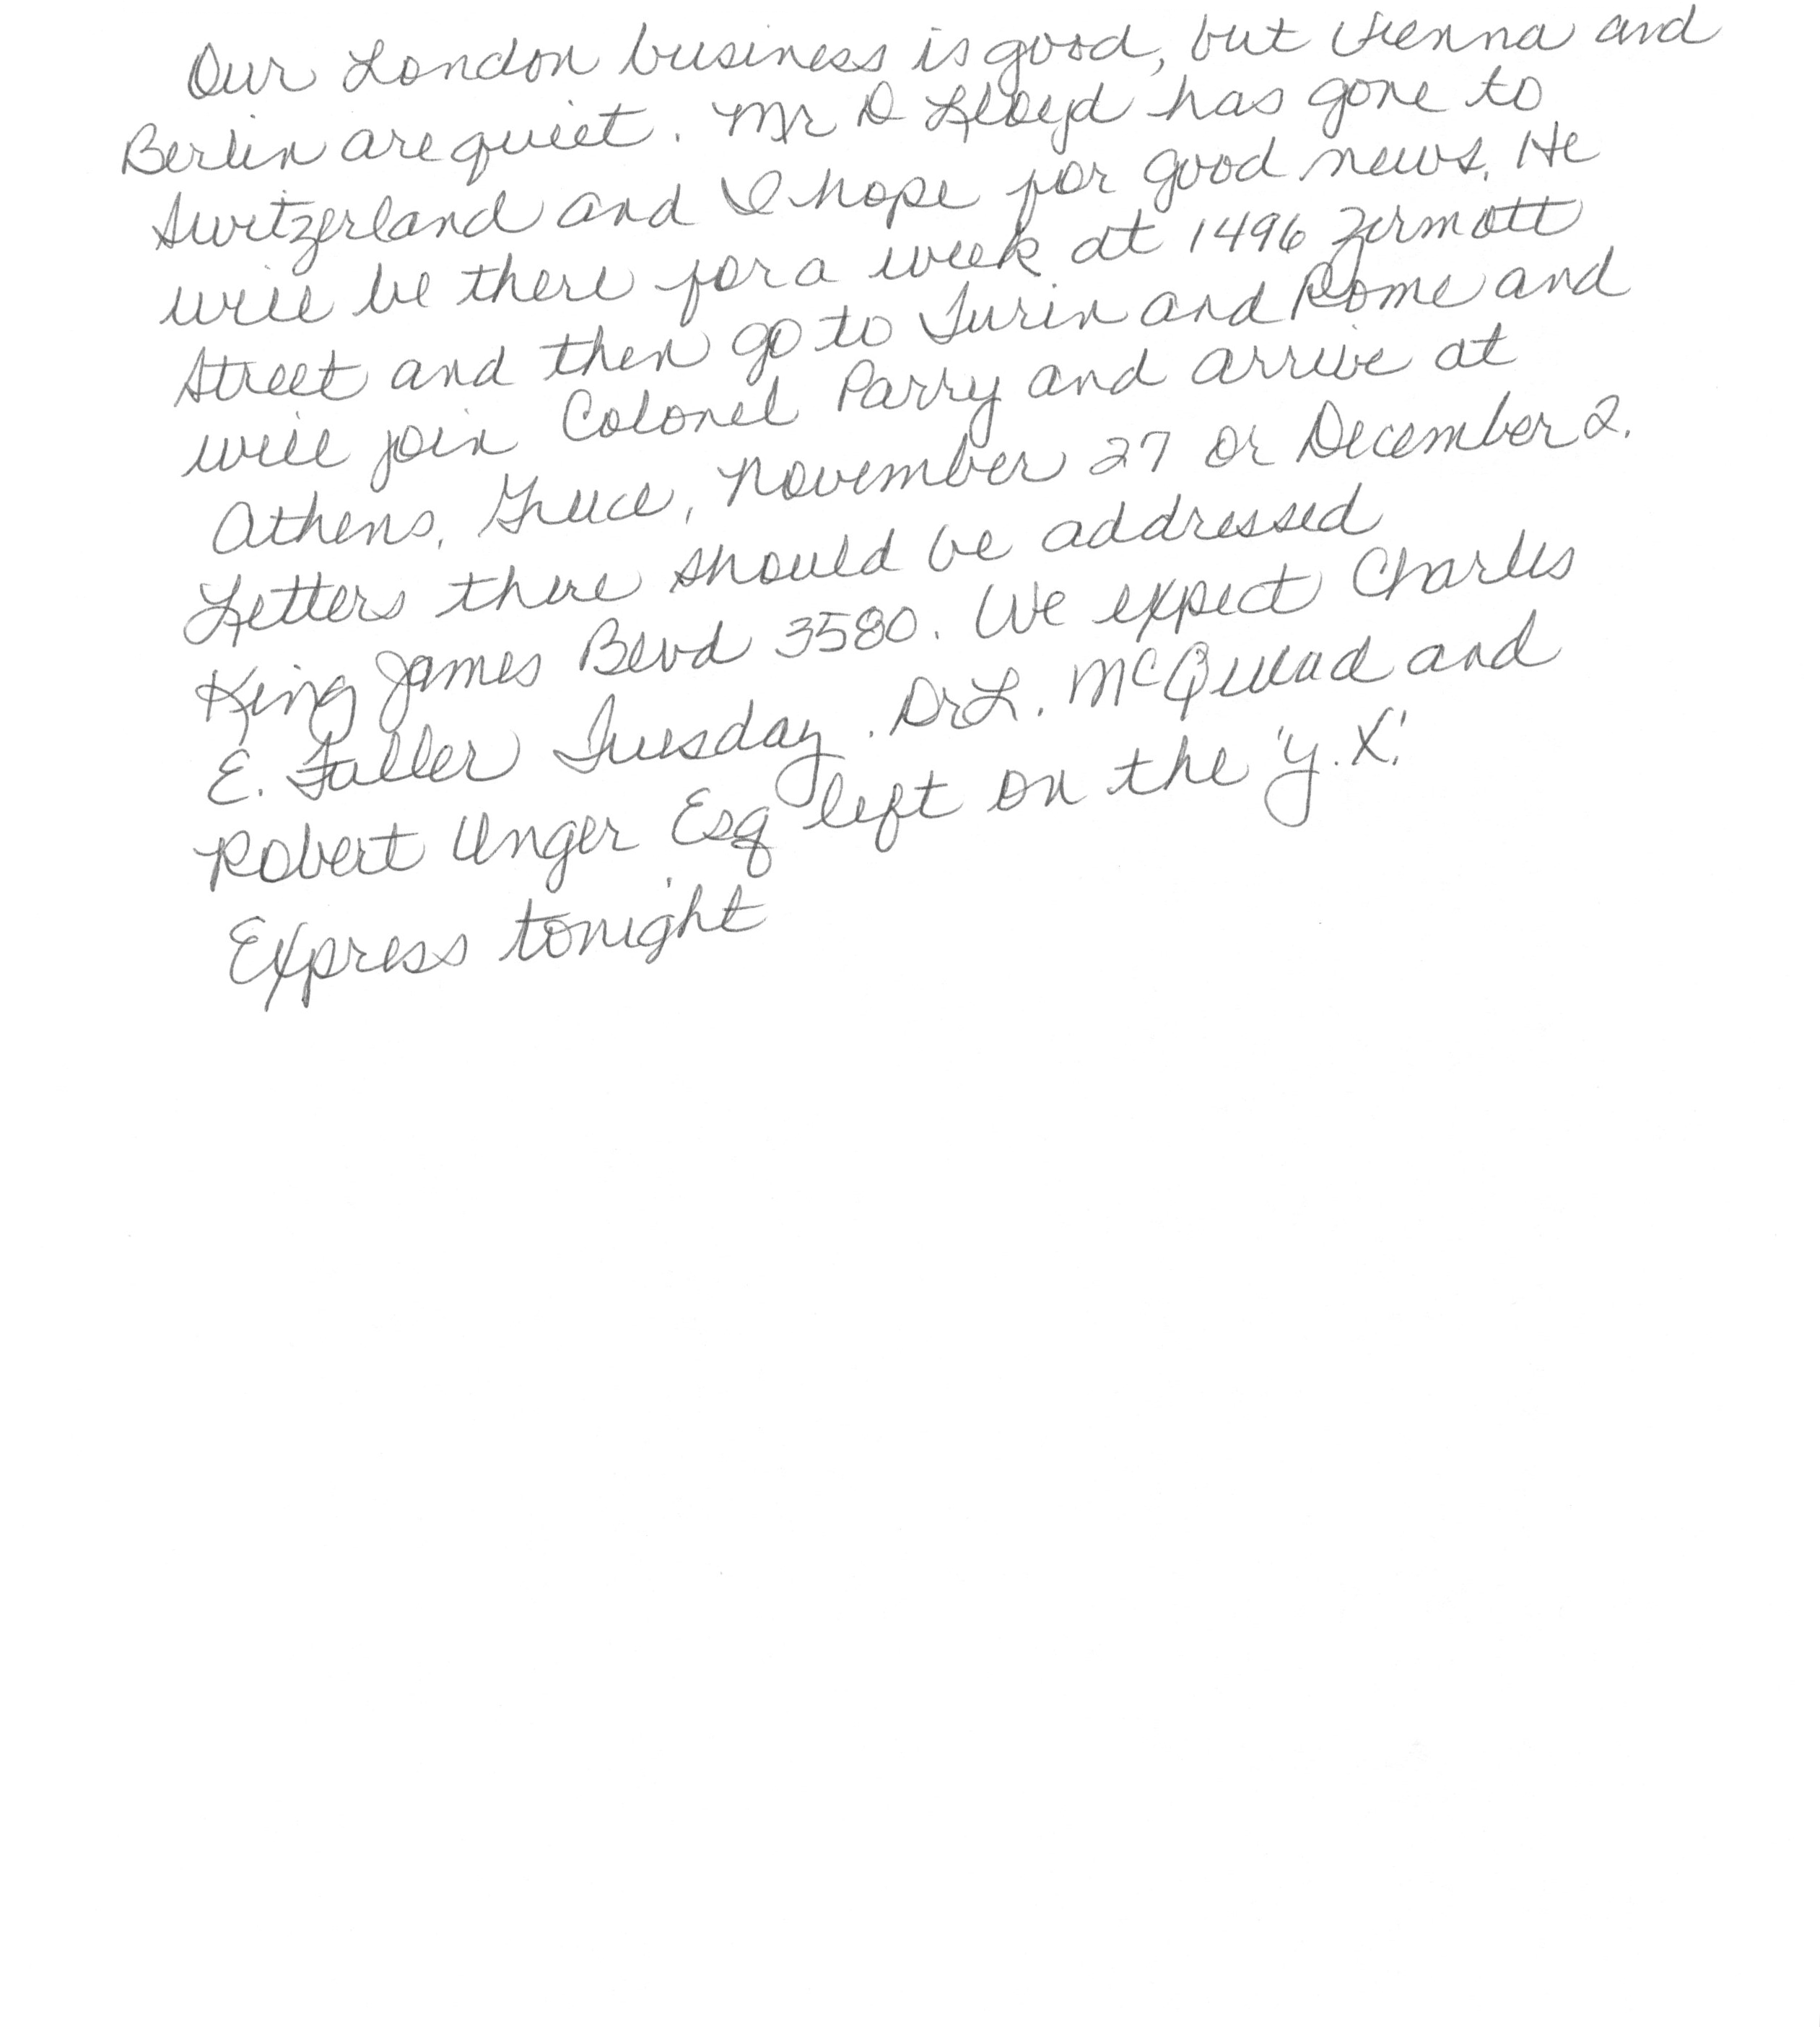 Our London business is good, but Vienna and
Berlin are quiet. Mr D Lloyd has gone to
Switzerland and I hope for good news. He
will be there for a week at 1496 Zermott
Street and then go to Turin and Rome and
will join Colonel Parry and arrive at
Athens, Greece, November 27 or December 2.
Letters there should be addressed
King James Blvd 3580. We expect Charles
E. Fuller Tuesday. Dr L. McQuaid and
Robert Unger Esq left on the 'Y.X.'
Express tonight